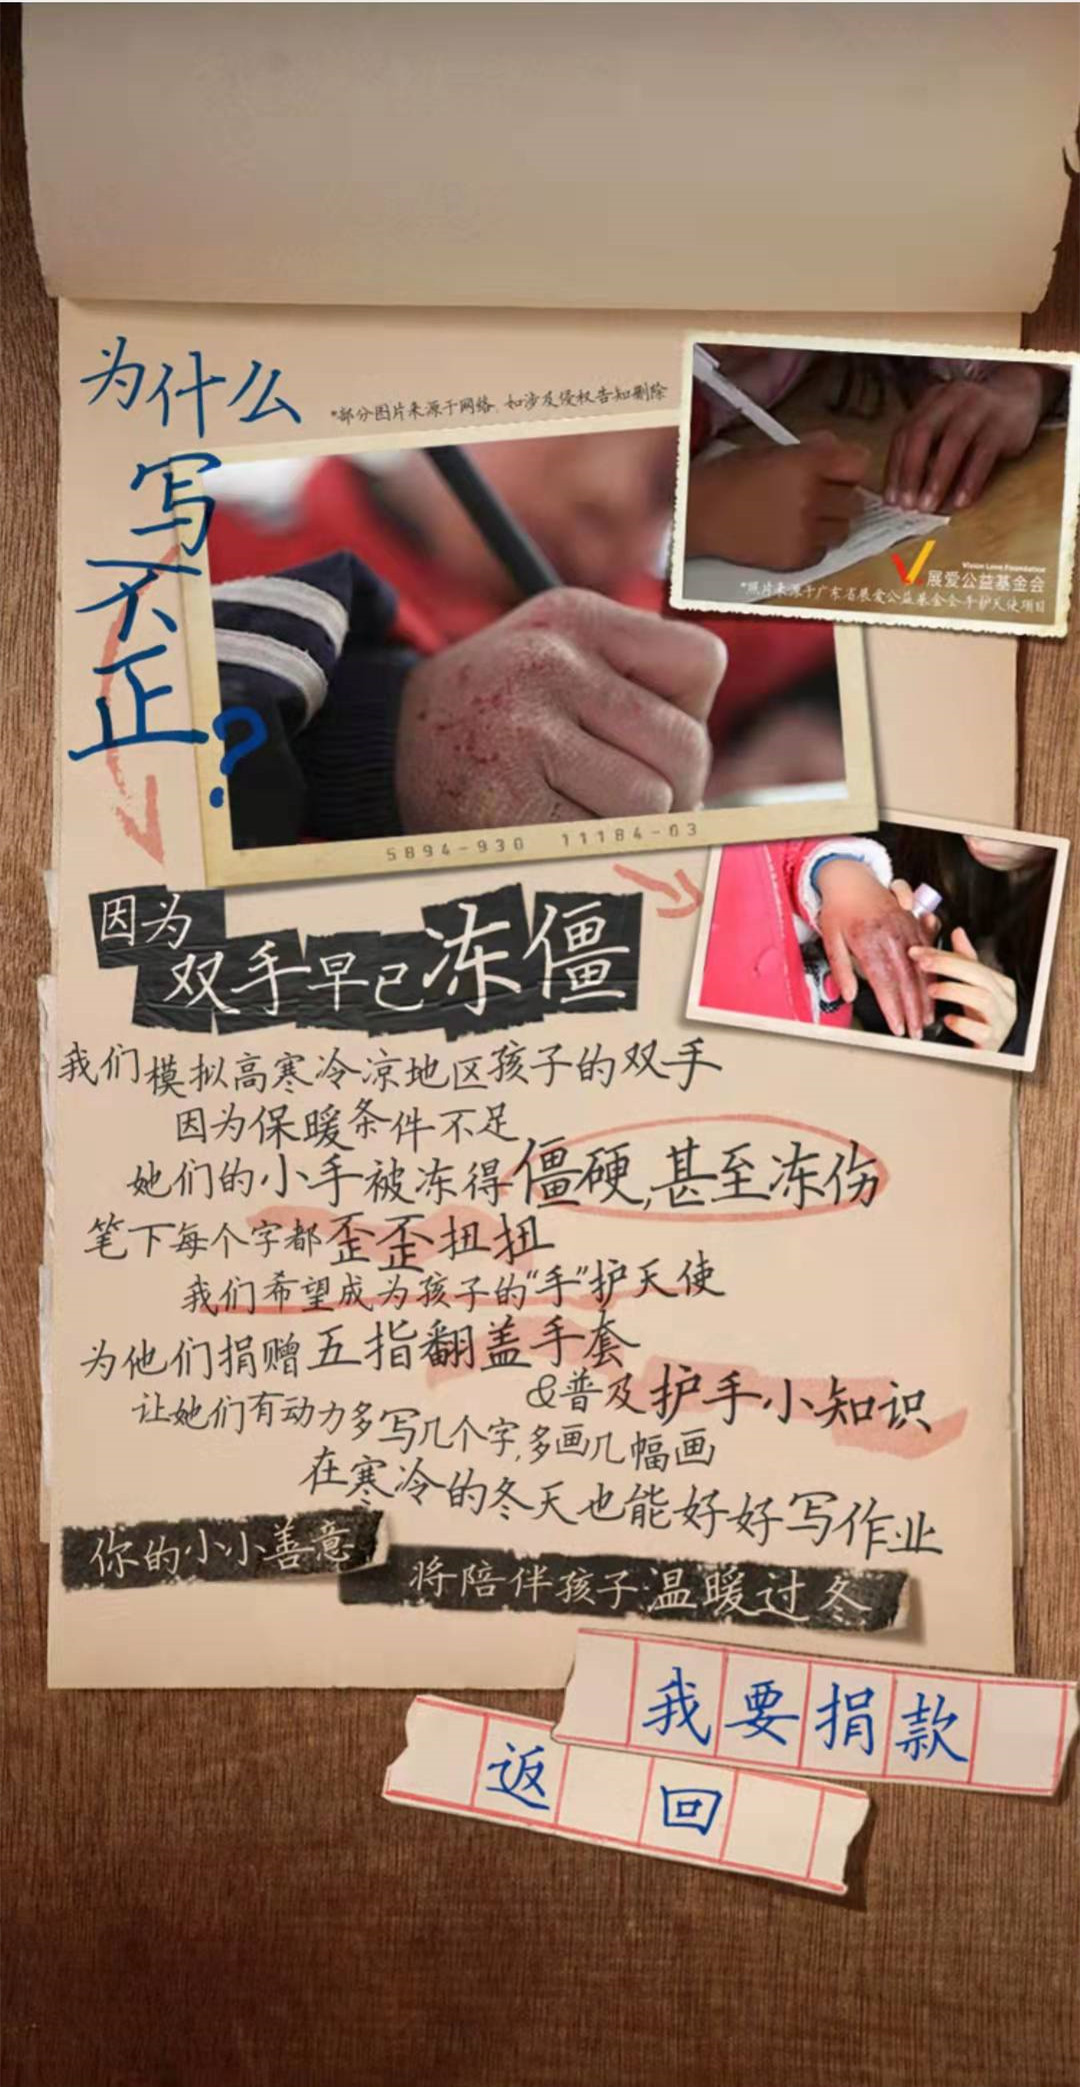 为什么
写
不
正?
*部分图片来源于网络,如涉及侵权告知删除
Vision Love Foundation
展爱公益基金会
*照片来源于广东省展爱公益基金会手护天使项目
5894-930 11184-03
因为
双手早已冻僵
我们模拟高寒冷凉地区孩子的双手
因为保暖条件不足
她们的小手被冻得僵硬,甚至冻伤
笔下每个字都歪歪扭扭
我们希望成为孩子的“手”护天使
为他们捐赠五指翻盖手套
&普及护手小知识
让她们有动力多写几个字,多画几幅画
在寒冷的冬天也能好好写作业
你的小小善意
将陪伴孩子温暖过冬
我要捐款
返回